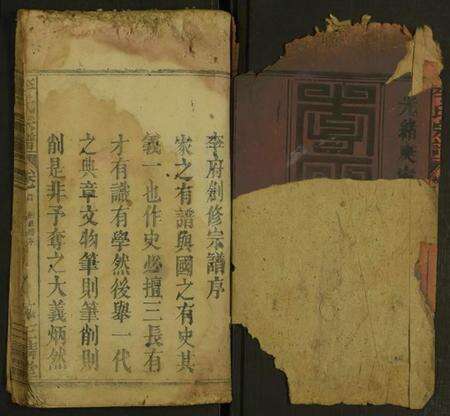 李氏宗譜
光緒
李府創修宗譜序
家之有譜與國之有史其
義一也作史必擅三長有
才有識有學然後舉一代
之典章文物筆則筆削則
削是非予奪之大義炳然